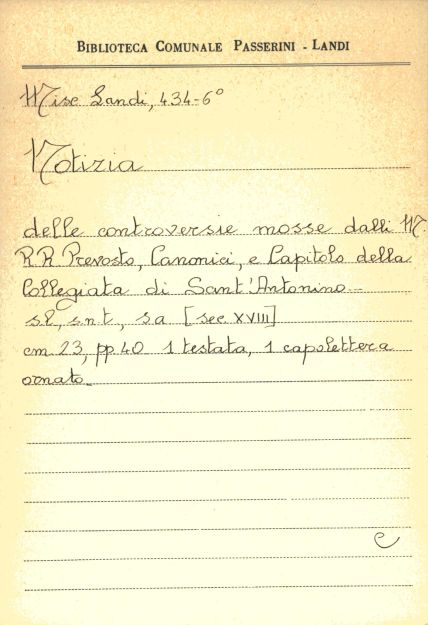 BIBLIOTECA COMUNALE PASSERINI - LANDI
Misc Landi, 434-6°
Notizia
delle controversie mosse dalli M.
R R Prevosto, Canonici, e Capitolo della
Collegiata di Sant'Antonino -
sl, snt, sa [sec XVIII]
cm 23, pp 40 1 testata, 1 capolettera
ornato.
e